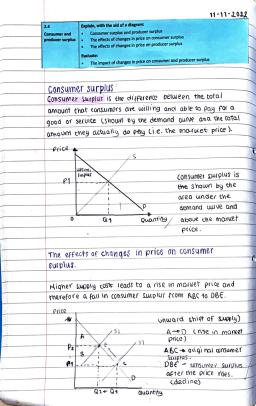 11-11-2022
2.4
Consumer and
producer surplus
Explain, with the aid of a diagram:
• Consumer surplus and producer surplus
• The effects of changes in price on consumer surplus
• The effects of changes in price on producer surplus
Evaluate:
• The impact of changes in price on consumer and producer surplus
Consumer surplus
Consumer surplus is the difference between the total
amount that consumers are willing and able to pay for a
good or service (shown by the demand curve and the total
amount they actually do pay (i.e. the market price).
Price
consu.
surplus
S
P1
D
0
Q1
Quantity
consumer surplus is
the shown by the
area under the
demand curve and
above the market
price.
The effects of changes in price on consumer
surplus.
Higher supply costs leads to a rise in market price and
therefore a fall in consumer surplus from ABC to DBE.
Price
A
S1
P2
B
C
P1
D
Q2 ← Q1
Quantity
(inward shift of supply)
A→D (rise in market
price)
ABC → original consumer
surplus.
DBE → consumer surplus
after the price rises.
(decline)